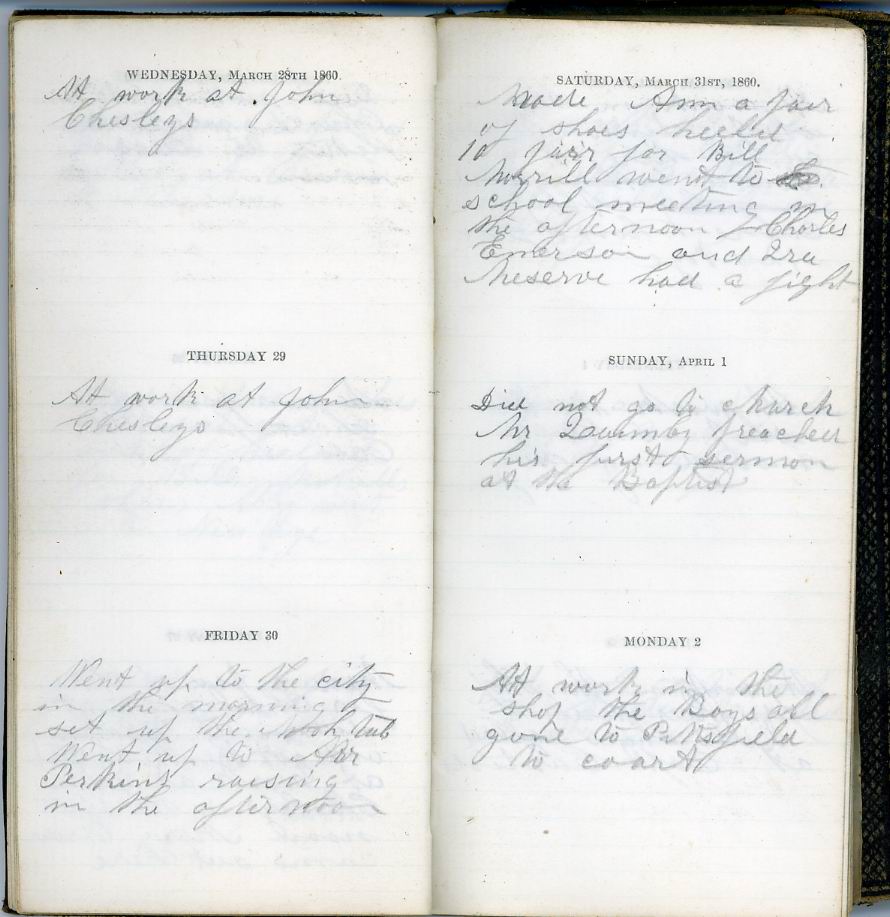 WEDNESDAY, MARCH 28TH 1860.
At work at John
Chesleys
THURSDAY 29
At work at John
Chesleys
FRIDAY 30
Went up to the city
in the morning
set up the tub
Went up to Abr
Perkins raising
in the afternoon
SATURDAY, MARCH 31ST, 1860.
Made Ann a pair
of shoes heeled
10 pair for Bill
Morrill went to
school meeting in
the afternoon Charles
Emerson and Ira
Meserve had a fight
SUNDAY, APRIL 1
Did not go to church
Mr Quimby preached
his first sermon
at the Baptist
MONDAY 2
At work in the
shop the Boys all
gone to Pittsfield
to court